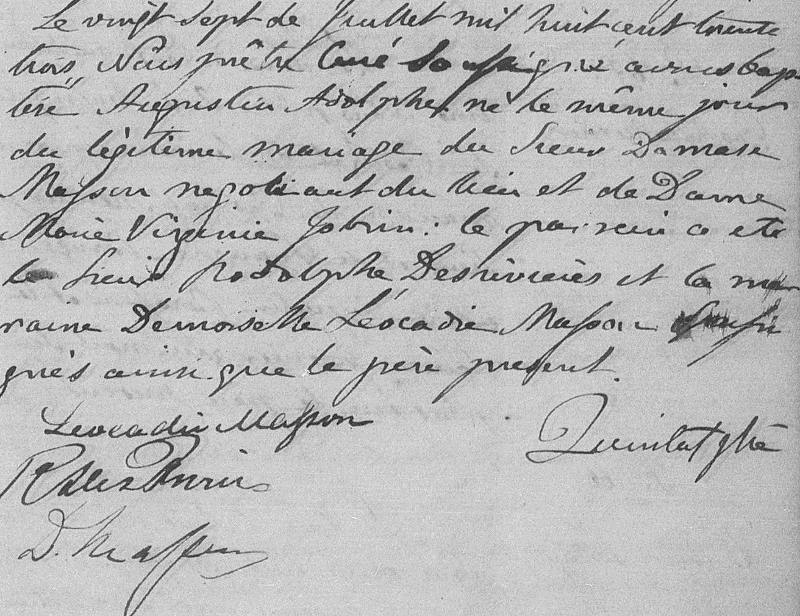 Le vingt sept de Juillet mil huit cent trente
trois, Nous prêtre Curé Soussigné avons bap
tisé Augustin Adolphe, né le même jour
du légitime mariage du Sieur Damase
Masson negotiant du lieu et de Dame
Marie Virginie Jobin: le parrain a ete
le Sieur Rodolphe Desrivières et la mar
raine Demoiselle Léocadie Masson Soussi
gnés ainsi que le père present.
Leocadie Masson
R DesRivieres
D. Masson